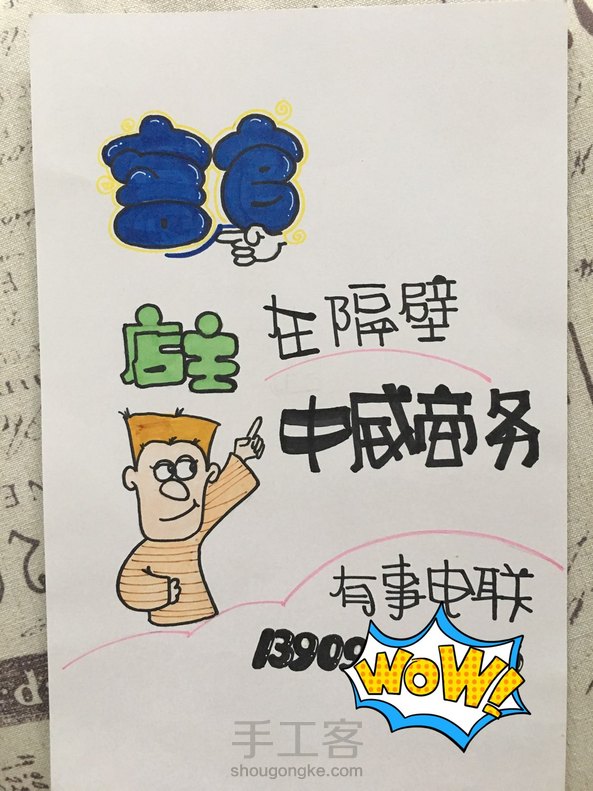 客官
店主
在隔壁
中威商务
有事电联
13909
WOW!
手工客
shougongke.com